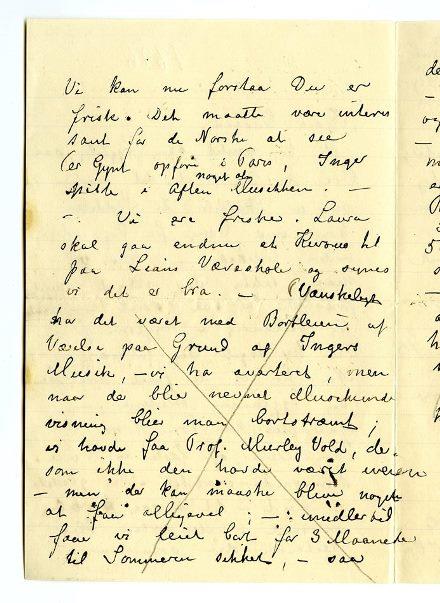 Vi kan nu forstaa Du er
frisk. Det maatte være interes
sant for de Norske at see
Per Gynt opført i Paris, Inger
noget af
spille i Aften Musikken. —
—. Vi ere friske. Laura
skal gaa endnu et Kursus til
paa Væveskole og synes
vi det er bra. — (Vanskeligt
har det været med Bortleien af
Værelse paa Grund af Ingers
Musik, — vi ha averteret, men
naar de blir nevnet
visning blir man bortskræmt;
vi havde faa Prof. Mourly Vold, der
som ikke den havde været iveien
— men der kan maaske blive noget
at faa alligevel; — imidlertid
faar vi leiet bort for 3 Maaneder
til Sommeren sikkert, — saa